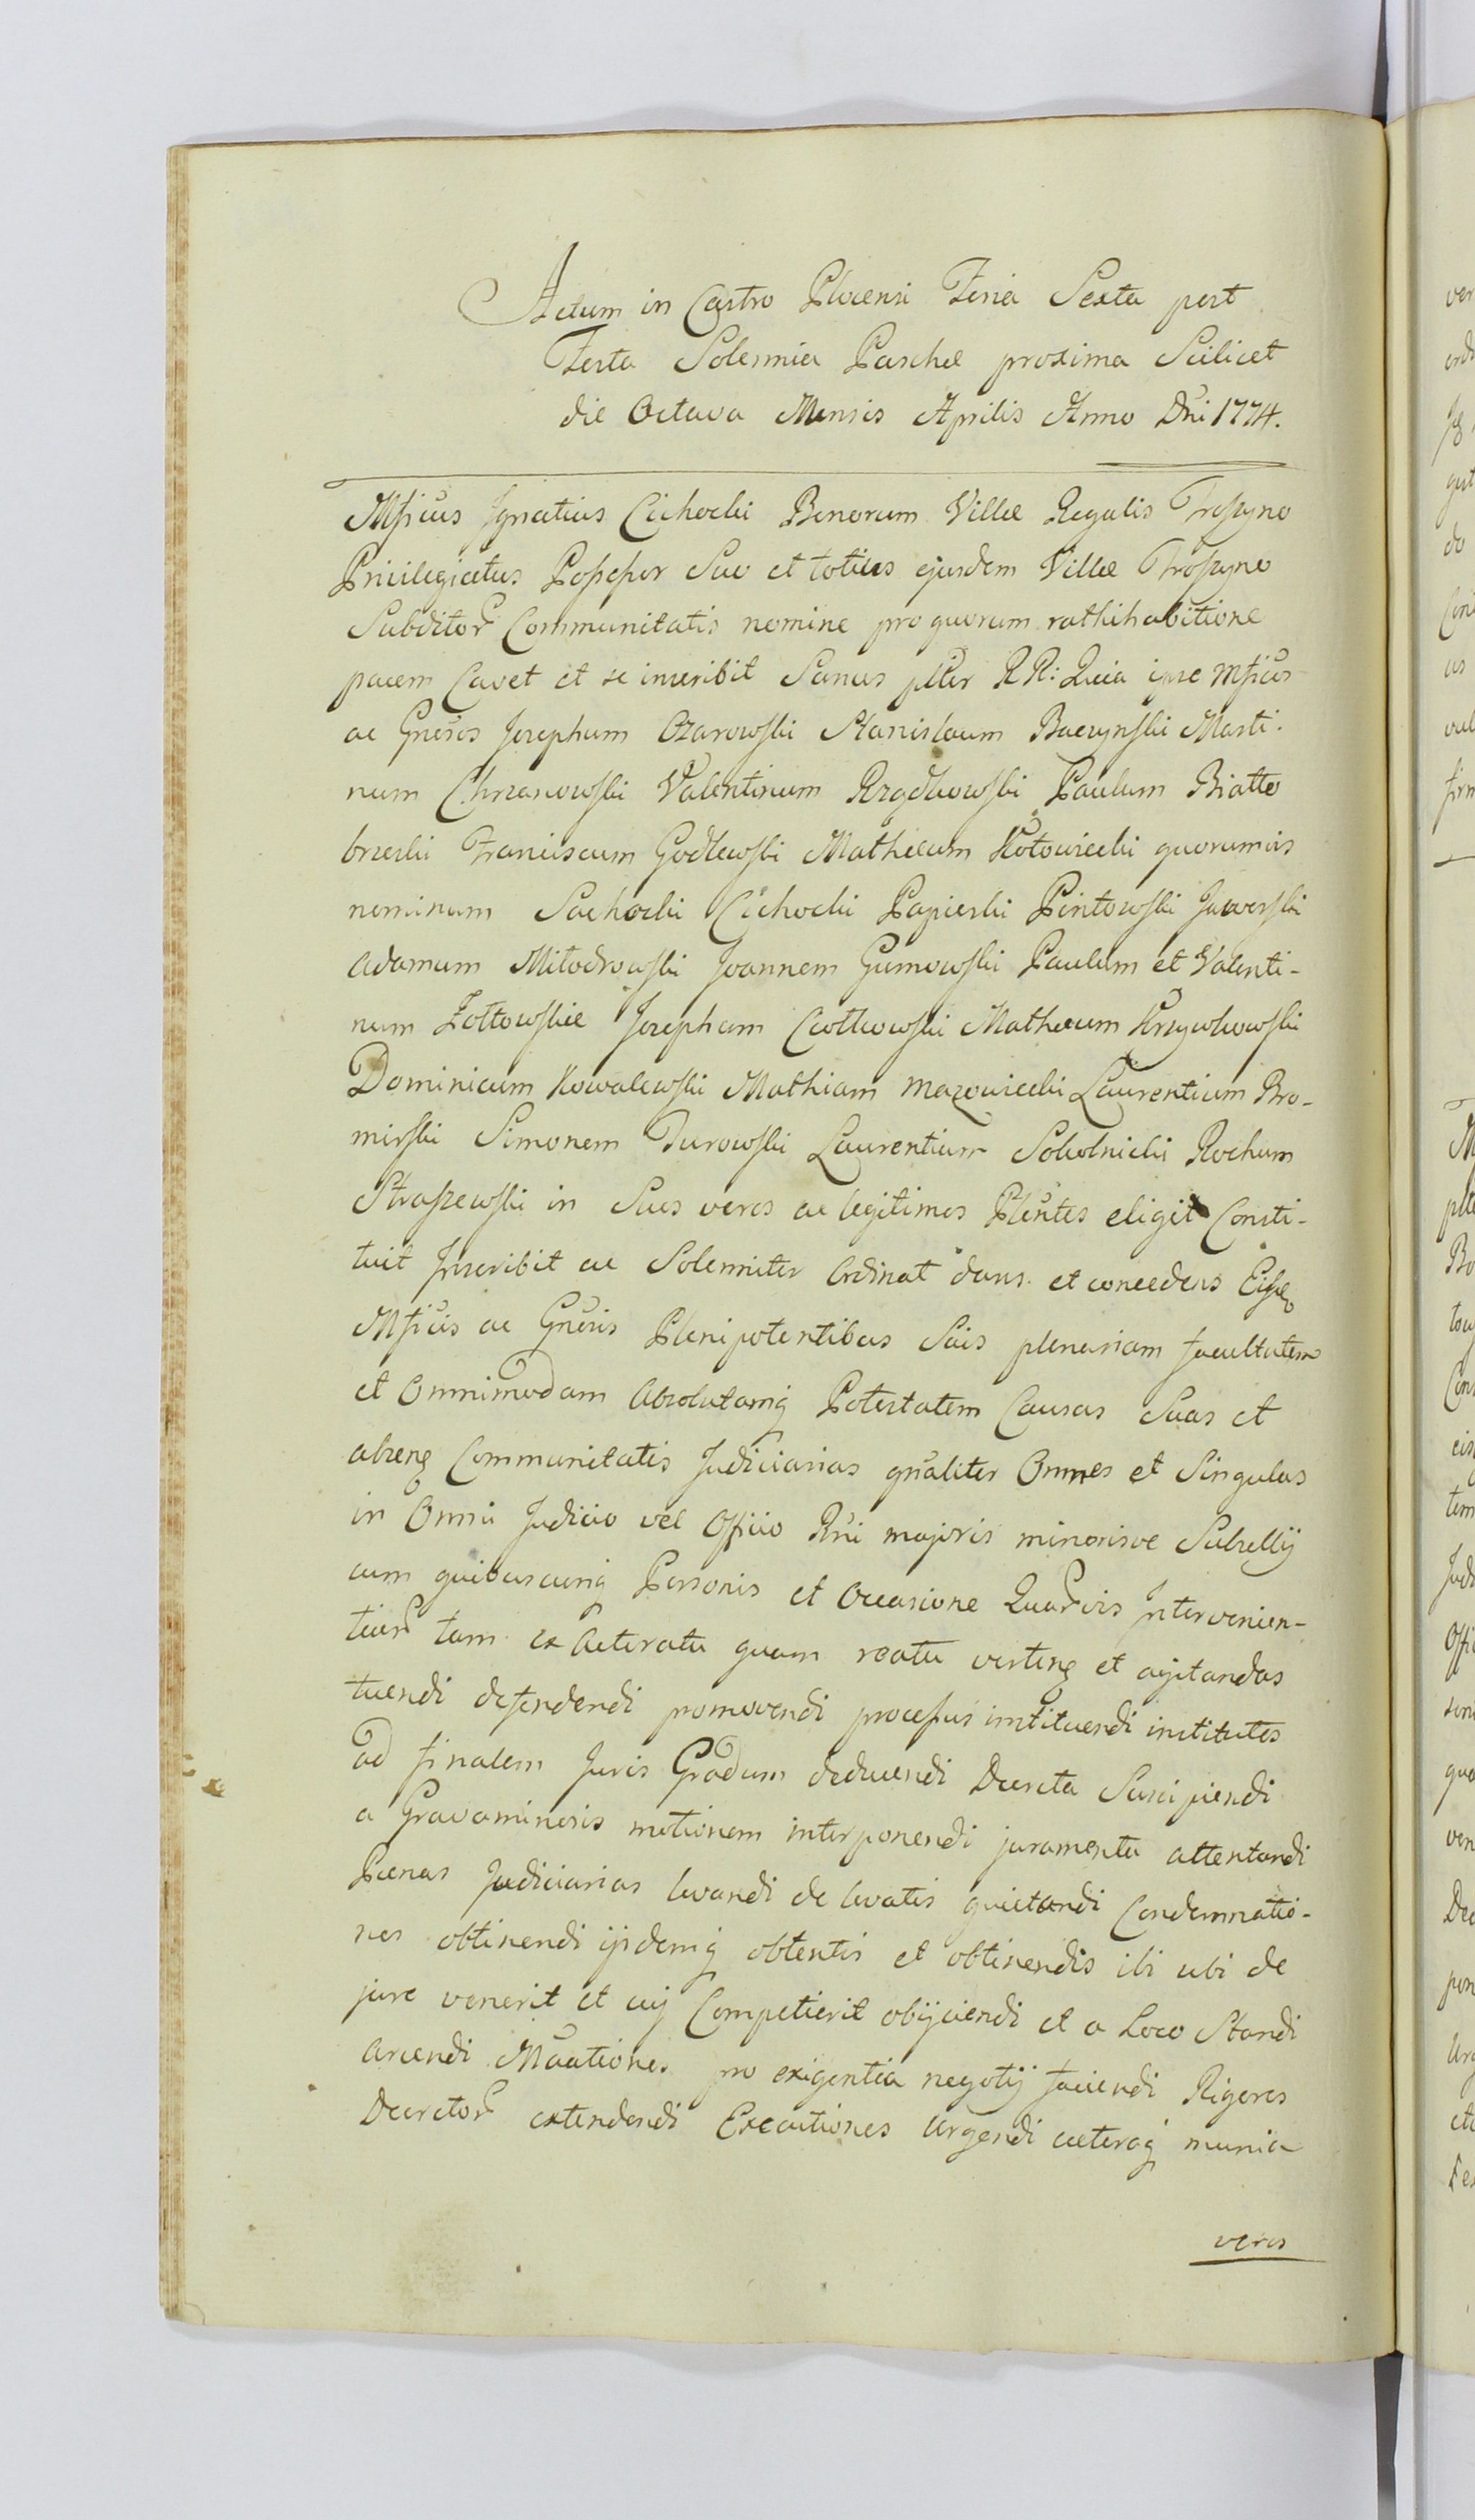 Actum in Castro Plocensi Feria Sexta post
Festa Solennia Paschæ proxima Scilicet
die Octava Mensis Aprilis Anno Dñi 1774.
Mficus Ignatius Cichocki Bonorum Villæ Regalis Troszyno
Privilegiatus Possessor Suo et totius ejusdem Villæ Troszyno
Subditor Communitatis nomine pro quorum rathihabitione
pacem Cavet et se inscribit Sanus plter RR: Quia ipse Mficus
ac Gnesos Josephum Ozarowski Stanislaum Baczynski Marti-
num Chrzanowski Valentinum Rządkowski Paulum Białło
brzeski Franciscum Godlewski Mathæum Kołowiecki quorumvis
nominum Sachocki Cichocki Papieski Pintowski Jaworski
Adamum Miłodrowski Joannem Gumowski Paulum et Valenti-
num Żołtowskie Josephum Czołkowski Mathæum Krzywkowski
Dominicum Kowalewski Mathiam Mazowiecki Laurentium Bro-
mirski Simonem Turowski Laurentium Sokolnicki Rochum
Straszewski in Suos veros ac legitimos Plentes eligit Consti-
tuit Inscribit ac Solenniter Ordinat dans et concedens Eisdem
Mficis ac Gnesis Plenipotentibus Suis plenariam facultatem
et Omnimodam Absolutamq Potestatem Causas Suas et
Communitatis Judiciarias gnaliter Omnes et Singulas
in Omni Judicio vel Officio Rni majoris minorisve Subsellij
cum quibuscunq Personis et Occasione Quarvis Intervenien-
tiar tam ex Actoratu quam reatu verteng et agitandas
tuendi defendendi promovendi processus instituendi institutos
ad finalem Juris Gradum deducendi Decreta Suscipiendi
a Gravaminosis motionem interponendi juramenta attentandi
Pænas Judiciarias luendi de levatis quietandi Condemnatio-
nes obtinendi ijsdemq obtentis et obtinendis ibi ubi de
jure venerit et cuj Competierit obijciendi et a Loco Standi
Arcendi pro exigentia negotij faciendi Rigores
Decretor extendendi Executiones Urgendi cæteraq munia
veros